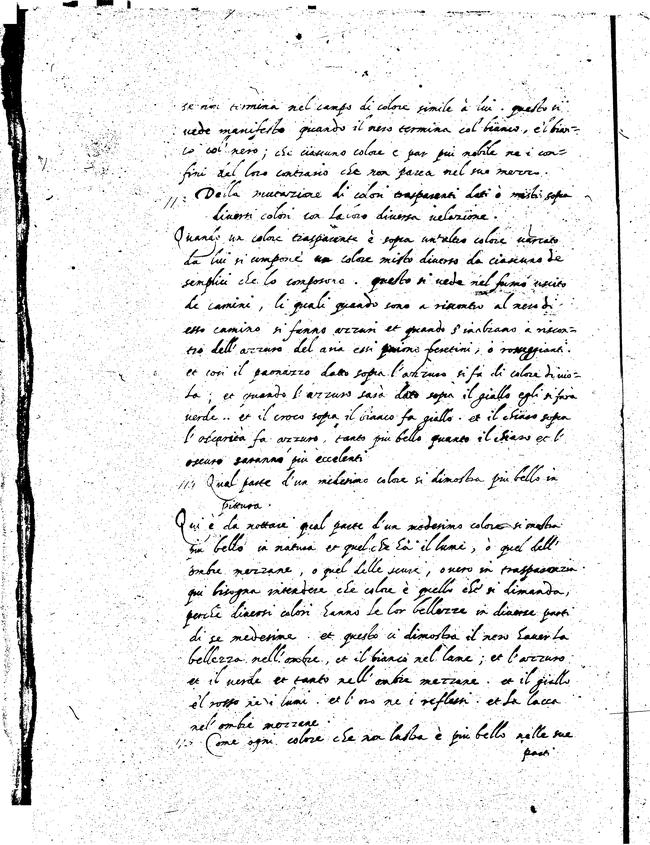 se non termina nel campo di colore simile à lui. questo si
vede manifesto quando il nero termina col bianco, e'l bian=
co col nero; che ciascuno colore e par piu nobile ne i con=
fini del loro contrario che non parea nel suo mezzo.
Della mutazione di colori trasparenti dati ò misti sopra
diversi colori con la loro diversa velazione.
Quando un colore trasparente è sopra un'altro colore variato
da lui si compone un colore misto diverso da ciascuno de
semplici che lo compongono. questo si vede nel fumo uscito
de camini, li quali quando sono a riscontro al nero di
esso camino si fanno azzuri et quando s'inalzano a riscon=
tro dell'azzuro del aria essi paiono berettini, ò rosseggianti.
et cosi il paonazzo dato sopra l'azzuro si fà di colore di vio=
la; et quando l'azzuro sarà dato sopra il giallo egli si farà
verde.. et il croco sopra il bianco fa giallo. et il chiaro sopra
l'oscurità fa azzuro, tanto piu bello quanto il chiaro et l'
oscuro saranno piu eccelenti
Qual parte d'un medesimo colore si dimostra piu bello in
pittura.
Qui è da nottare qual parte d'un medesimo colore si mostra
piu bello in natura et quel che hà il lume, ò quel dell'
ombre mezzane, o quel delle scure, overo in trasparenza
qui bisogna intendere che colore è quello che si dimanda,
perche diversi colori hanno le lor bellezze in diverse parti
di se medesime. et questo ci dimostra il nero haver la
bellezza nell'ombre, et il bianco nel lume; et l'azzuro
et il verde et tanto nell'ombre mezzane. et il giallo
e'l rosso ne i lumi. et l'oro ne i reflessi. et la lacca
nel'ombre mezzane.
Come ogni colore che non lustra è piu bello nelle sue
parti